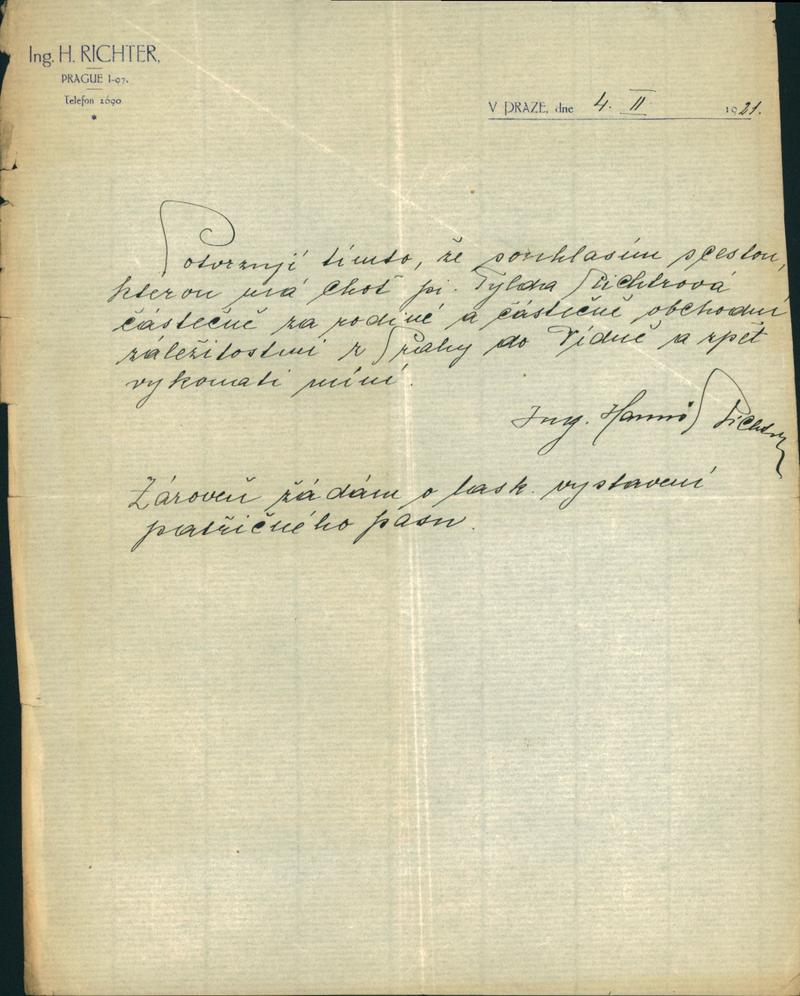 Ing. H. RICHTER,
PRAGUE I-97.
Telefon 2690
V PRAZE, dne 4. II 1921.
Potvrzuji tímto, že souhlasím s cestou,
kterou má choť pí. Tylda Richtrová
částečně za rodinné a částečně obchodní
záležitostmi z Prahy do Vídně a zpět
vykonati míní.
Ing. Hanuš Richter
Zároveň žádám o lask. vystavení
patřičného pasu.